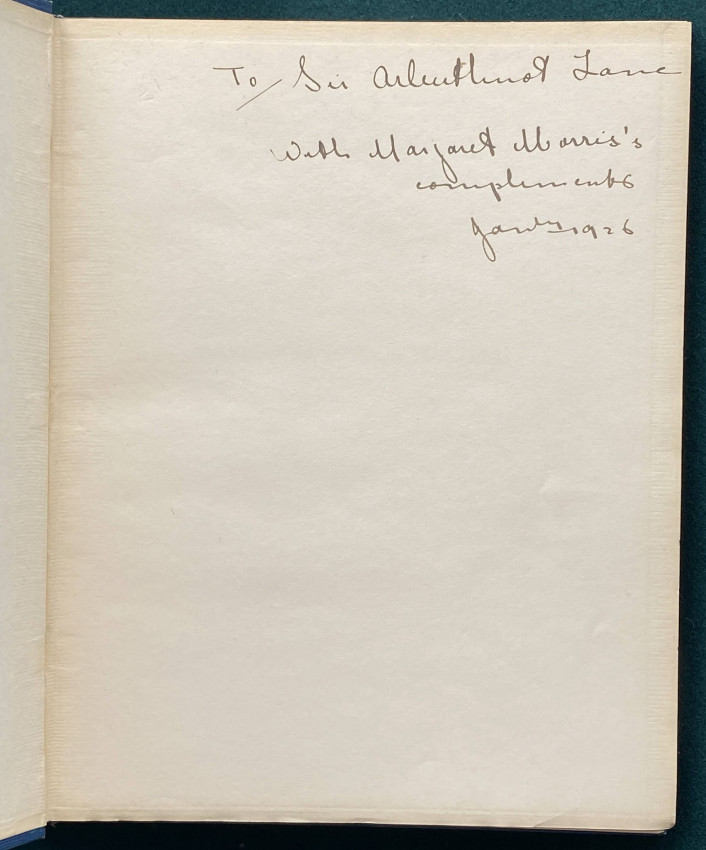 To/ Sir Arbuthnot Lane
With Margaret Morris's
compliments
Jan'ry 1926